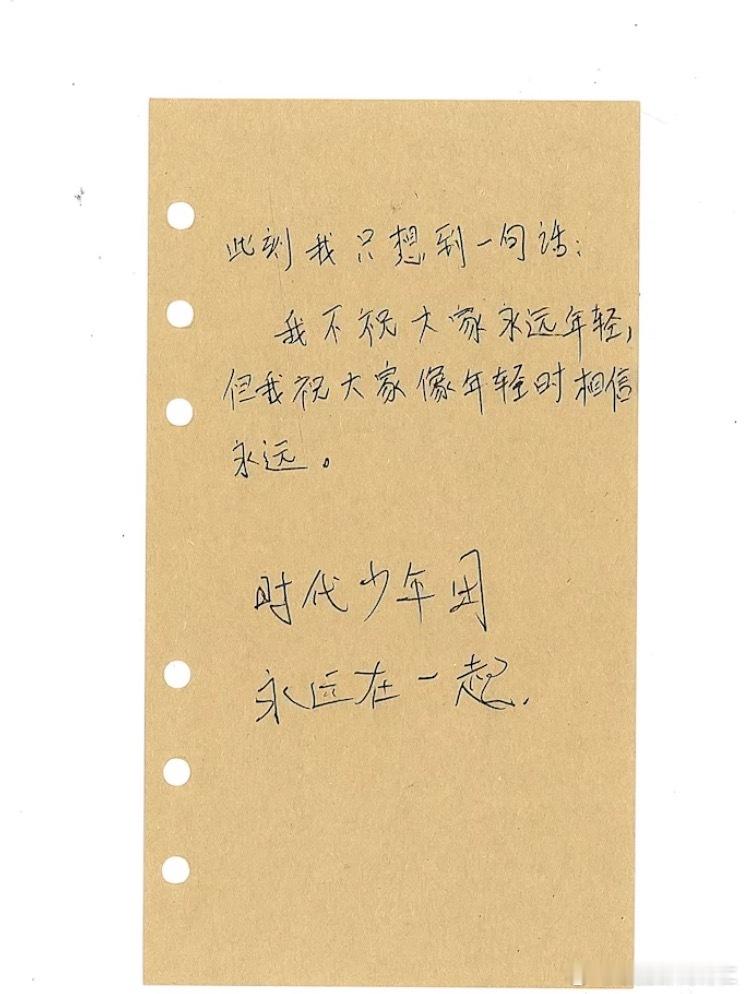 此刻我只想到一句话：
我不祝大家永远年轻，
但我祝大家像年轻时相信
永远。
时代少年团
永远在一起.